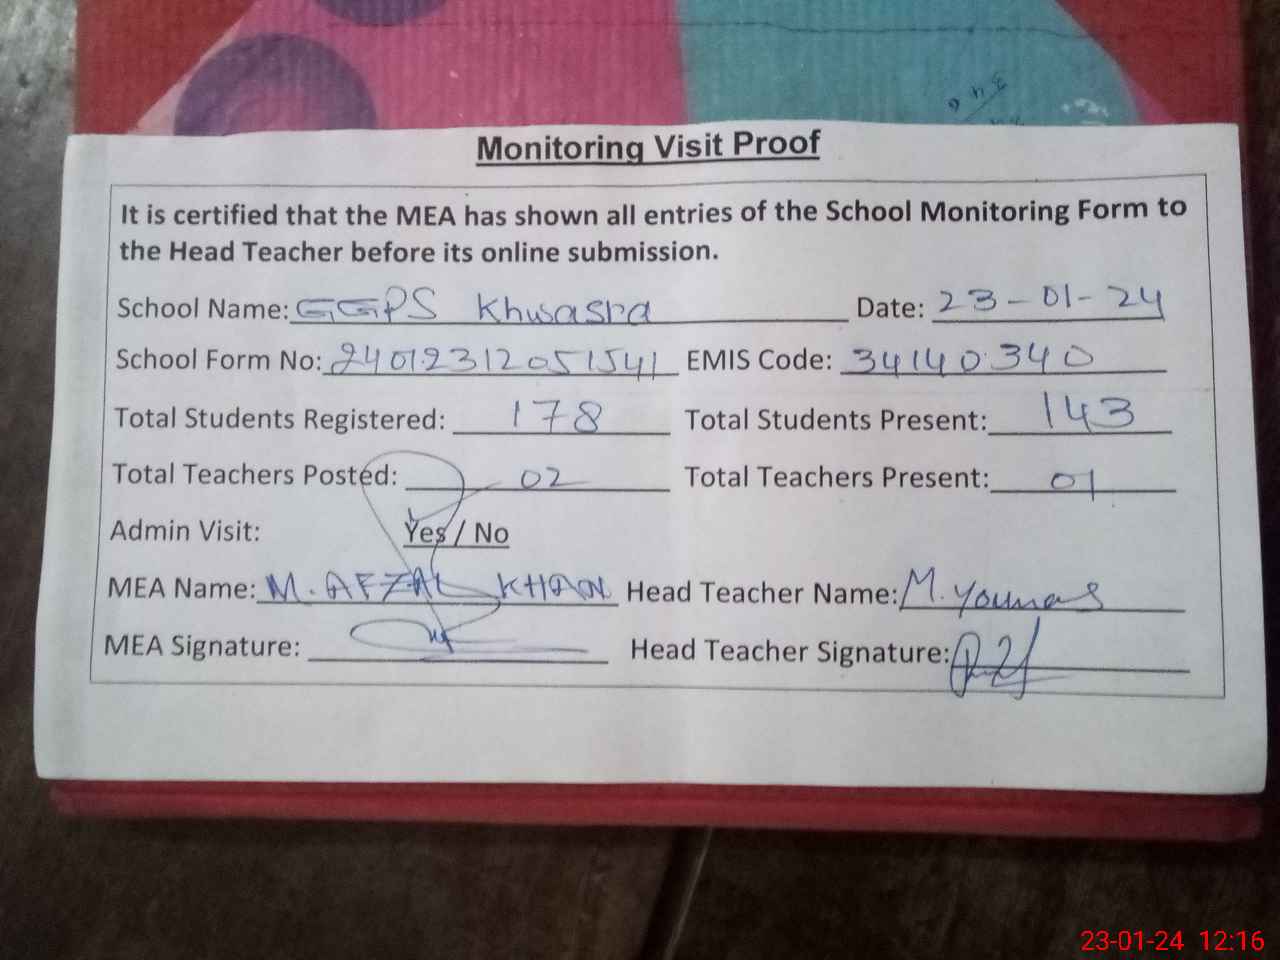 Monitoring Visit Proof
It is certified that the MEA has shown all entries of the School Monitoring Form to
the Head Teacher before its online submission.
School Name: GGPS Khwasra Date: 23-01-24
School Form No: 24012312051541 EMIS Code: 34140340
Total Students Registered: 178 Total Students Present: 143
Total Teachers Posted: 02 Total Teachers Present: 01
Admin Visit: Yes / No
MEA Name: M. AFZAL KHAN Head Teacher Name: M. Younas
MEA Signature: Head Teacher Signature:
23-01-24 12:16